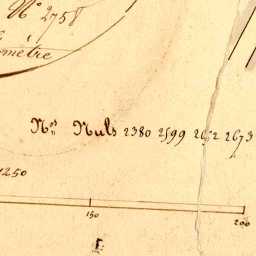 N° 2758
omètre
N.os Nuls 2380 2599 2672 2673
1250
150 200